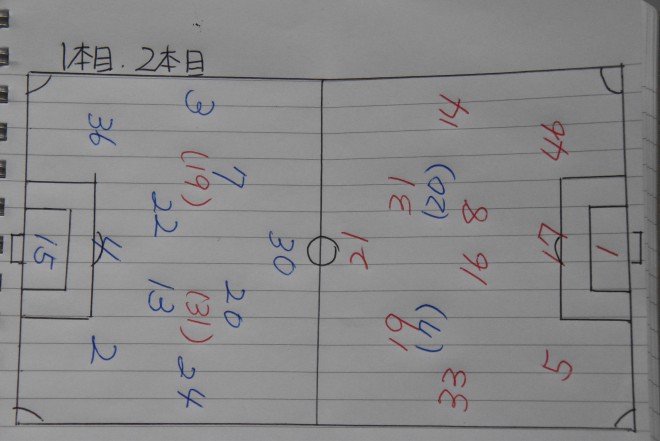 1本目.2本目
3
36
7
(19)
22
30
15
4
20
13
(31)
24
2
14
44
(20)
31
8
21
16
17
1
(4)
19
5
33